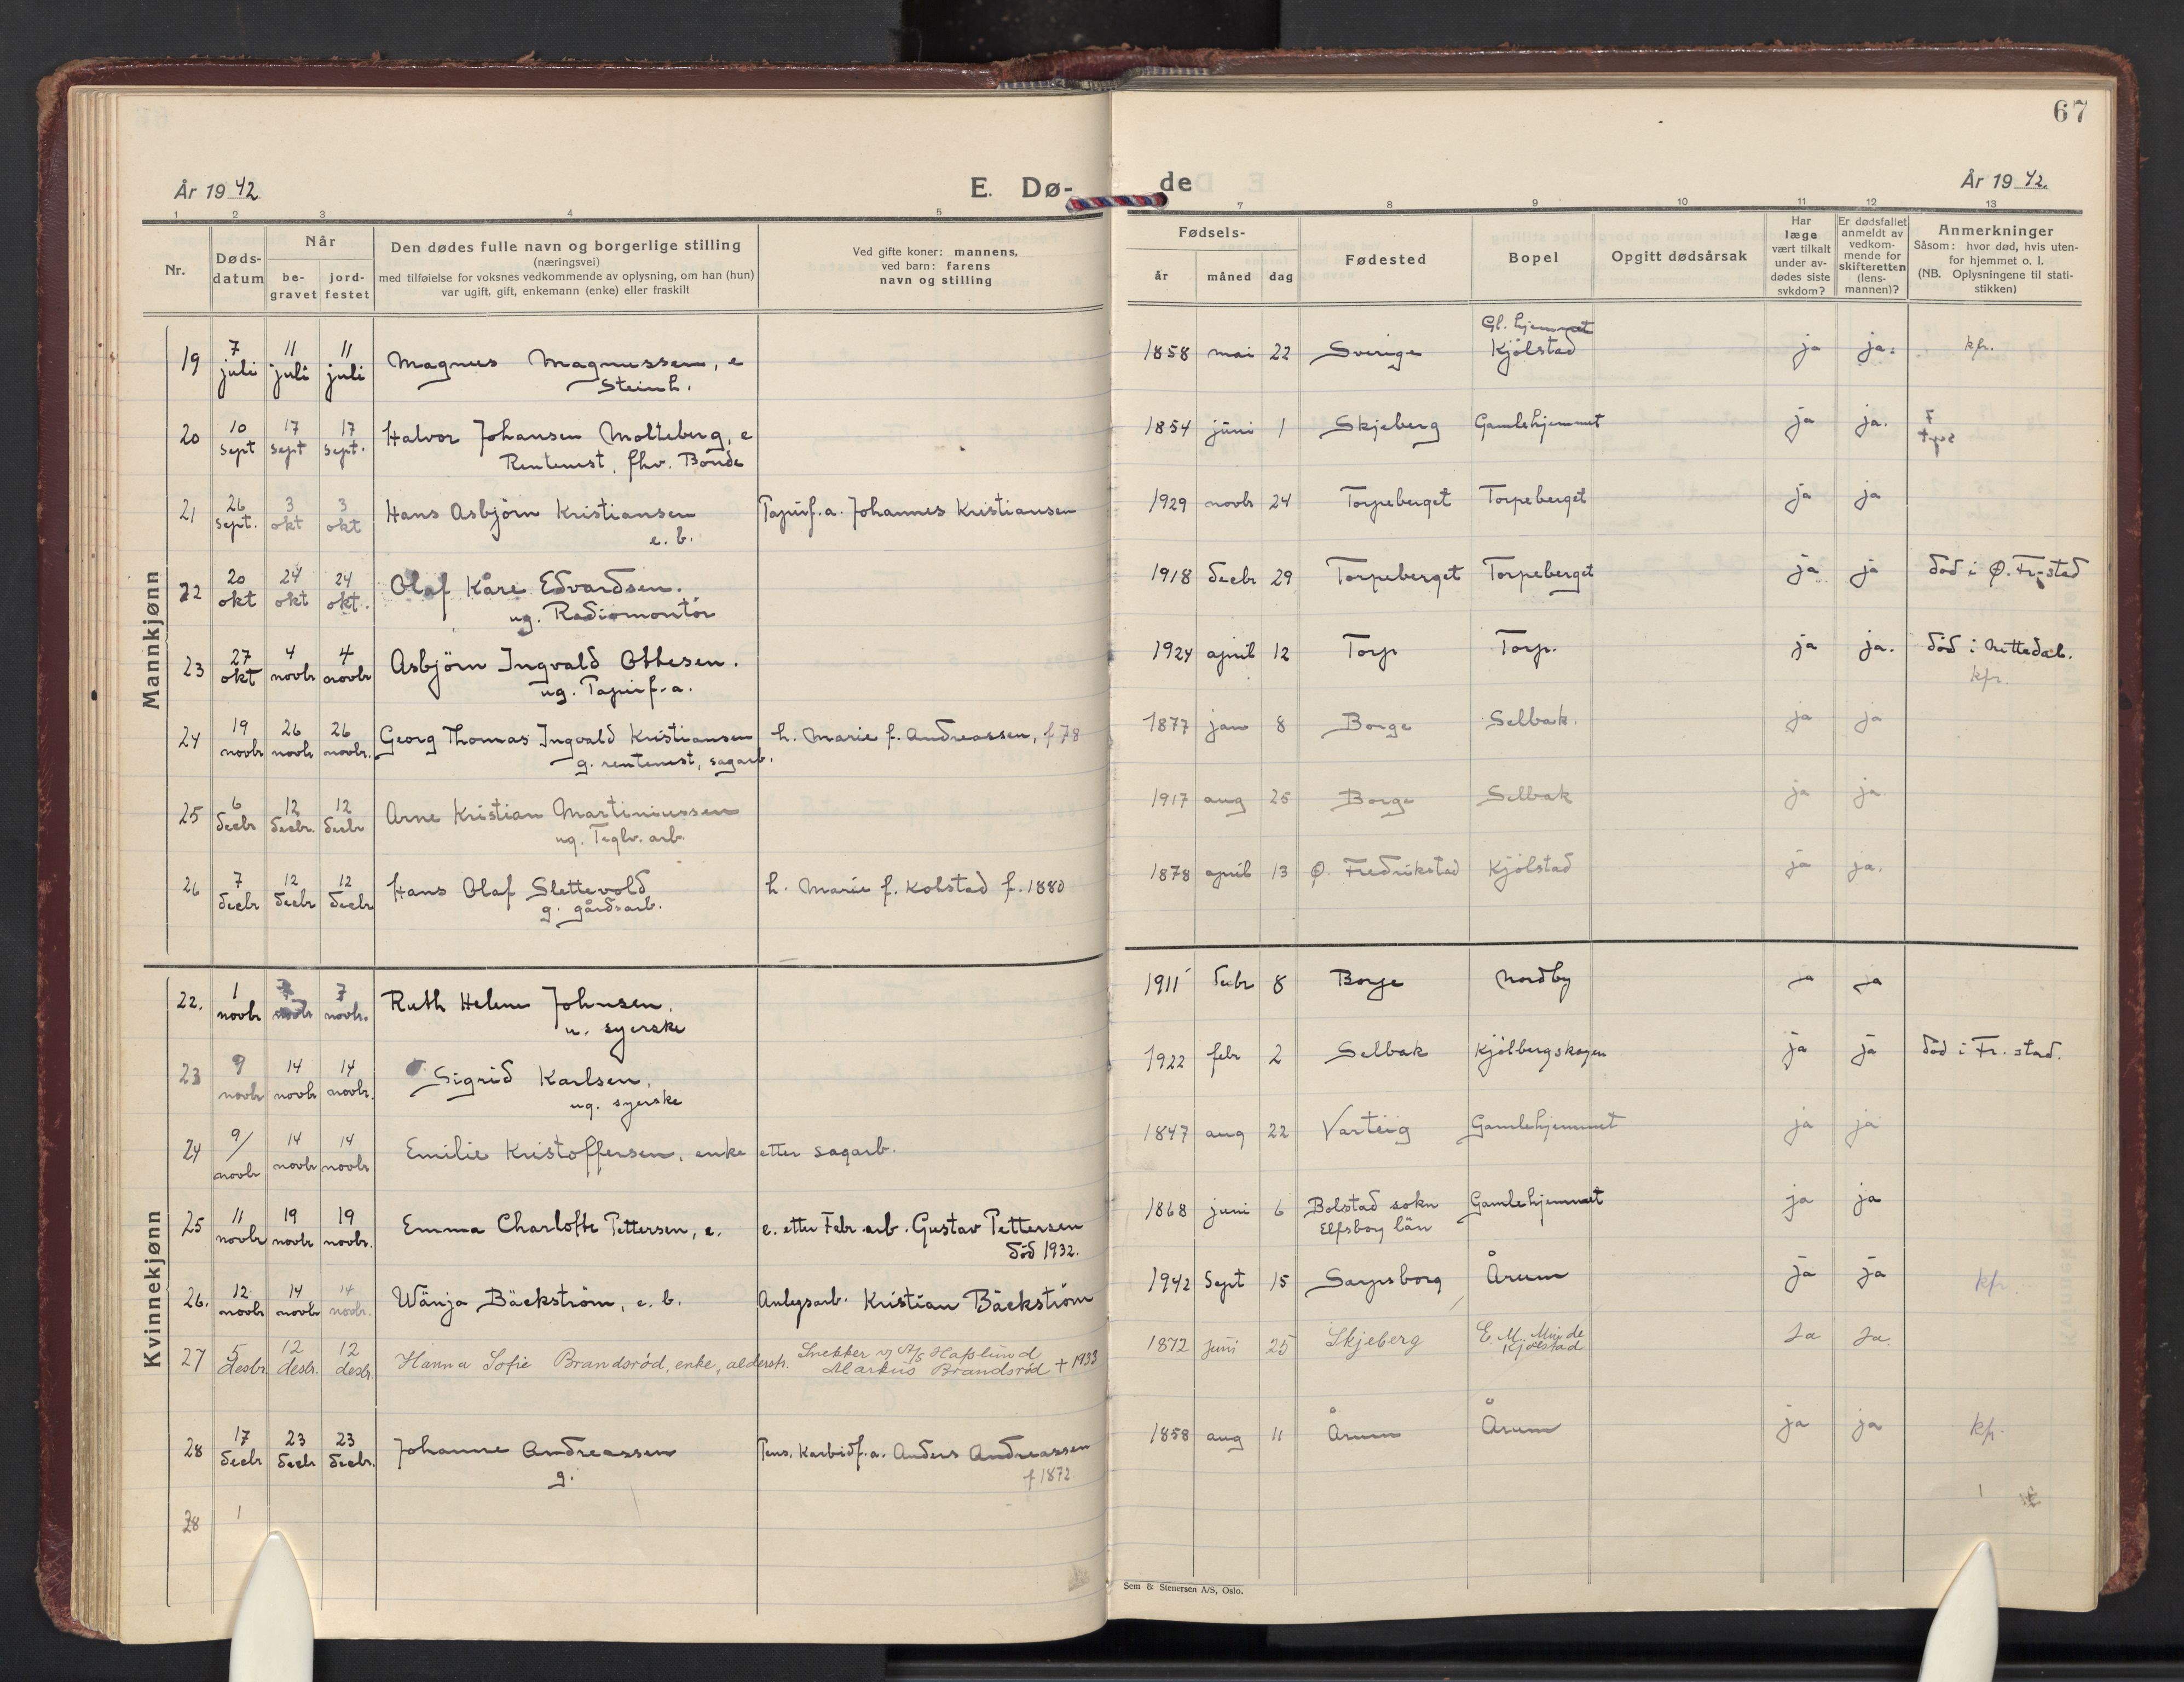 67
År 1942.
E. Dø-
de
År 1942.
1 2 3 4 5 7 8 9 10 11 12 13
Nr.
Døds-
datum
Når
be-
gravet
jord-
festet
Den dødes fulle navn og borgerlige stilling
(næringsvei)
med tilføielse for voksnes vedkommende av oplysning, om han (hun)
var ugift, gift, enkemann (enke) eller fraskilt
Ved gifte koner: mannens,
ved barn: farens
navn og stilling
Fødsels-
år måned dag
Fødested
Bopel
Opgitt dødsårsak
Har
læge
vært tilkalt
under av-
dødes siste
sykdom?
Er dødsfallet
anmeldt av
vedkom-
mende for
skifteretten
(lens-
mannen)?
Anmerkninger
Såsom: hvor død, hvis uten-
for hjemmet o. l.
(NB. Oplysningene til stati-
stikken)
Mannkjønn
Gl. hjemmet
19 7 juli 11 juli 11 juli Magnus Magnussen, e 1858 mai 22 Sverige Kjölstad ja ja. kfr.
Steinh.
20 10 sept 17 sept 17 sept. Halvor Johansen Molteberg, e 1854 juni 1 Skjeberg Gamlehjemmet ja ja.
Rentenist, fhv. Bonde
21 26 sept. 3 okt 3 okt Hans Asbjörn Kristiansen Papirf.a. Johannes Kristiansen 1929 novbr 24 Torpeberget Torpeberget ja ja
e. b.
22 20 okt 24 okt 24 okt. Olaf Kåre Edvardsen. 1918 decbr 29 Torpeberget Torpeberget ja ja död i Ø. Fr.stad
ug. Radiomontör
23 27 okt 4 novbr 4 novbr Asbjörn Ingvald Ottesen. 1924 april 12 Torp Torp. ja ja. död i Nittedal.
ug. Papirf.a. kfr.
24 19 novbr 26 novbr 26 novbr. Georg Thomas Ingvald Kristiansen h. Marie f. Andreassen, f 78 1877 jan 8 Borge Selbak. ja ja
g. rentenist, sagarb.
25 6 decbr 12 decbr. 12 decbr Arne Kristian Martiniussen 1917 aug 25 Borge Selbak ja ja
ug. Teglv. arb.
26 7 decbr 12 decbr 12 decbr Hans Olaf Slettevold h. Marie f. Kolstad f. 1880 1878 april 13 Ø. Fredrikstad Kjölstad ja ja.
g. gårdsarb.
Kvinnekjønn
22. 1 novbr 7 novbr 7 novbr. Ruth Helene Johnsen. 1911 decbr 8 Borge Nordby ja ja
u. syerske
23 9 novbr 14 novbr 14 novbr. Sigrid Karlsen. 1922 febr 2 Selbak Kjölbergskogen ja ja död i Fr. stad.
ug. syerske
24 9/ novbr 14 novbr 14 novbr Emilie Kristoffersen, enke etter sagarb. 1847 aug 22 Varteig Gamlehjemmet ja ja
25 11 novbr 19 novbr 19 novbr. Emma Charlotte Pettersen, e. e. etter Febr arb. Gustav Pettersen 1868 juni 6 Bolstad sokn Gamlehjemmet ja ja
död 1932. Elfsborg län
26. 12 novbr 14 novbr 14 novbr. Wänja Bäckström, e. b. Anlegsarb. Kristian Bäckström 1942 Sept 15 Sarpsborg Årum ja ja kfr.
27 5 desbr. 12 desbr. 12 desbr. Hanna Sofie Brandsröd, enke, alderstr. Snekker v/ A/S Hafslund 1872 juni 25 Skjeberg E. M. Minde Ja Ja.
Markus Brandsröd + 1933 Kjölstad
28 17 decbr 23 decbr 23 decbr. Johanne Andreassen Pens. Karbidf.a. Anders Andreassen 1858 aug 11 Årum Årum ja ja kfr.
g. f 1872
28 1
Sem & Stenersen A/S, Oslo.